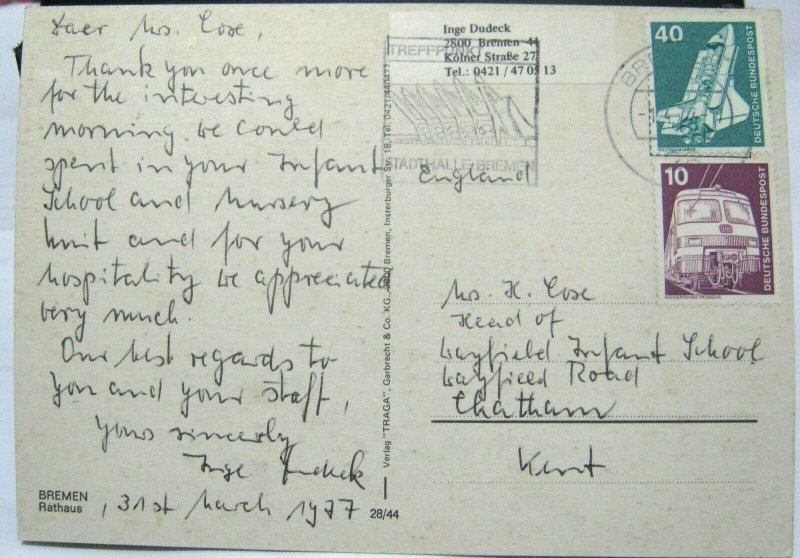 Daer Mrs. Cose,
Thank you once more
for the interesting
morning we could
spent in your Infant
School and Nursery
Unit and for your
hospitality we appreciated
very much.
Our best regards to
you and your staff,
yours sincerely
Inge Dudeck
BREMEN
Rathaus
, 31st March 1977
28/44
Verlag "TRAGA", Garbrecht & Co. KG., 2800 Bremen, Insterburger Str. 18, Tel. 0421/440477
Inge Dudeck
2800 Bremen 44
Kölner Straße 27
Tel.: 0421 / 47 05 13
TREFFPUNKT
STADTHALLE BREMEN
England
40
DEUTSCHE BUNDESPOST
WELTRAUMLABOR
10
DEUTSCHE BUNDESPOST
NAHVERKEHRS-TRIEBZUG
Mrs. H. Cose
Head of
Wayfield Infant School
Wayfield Road
Chatham
Kent